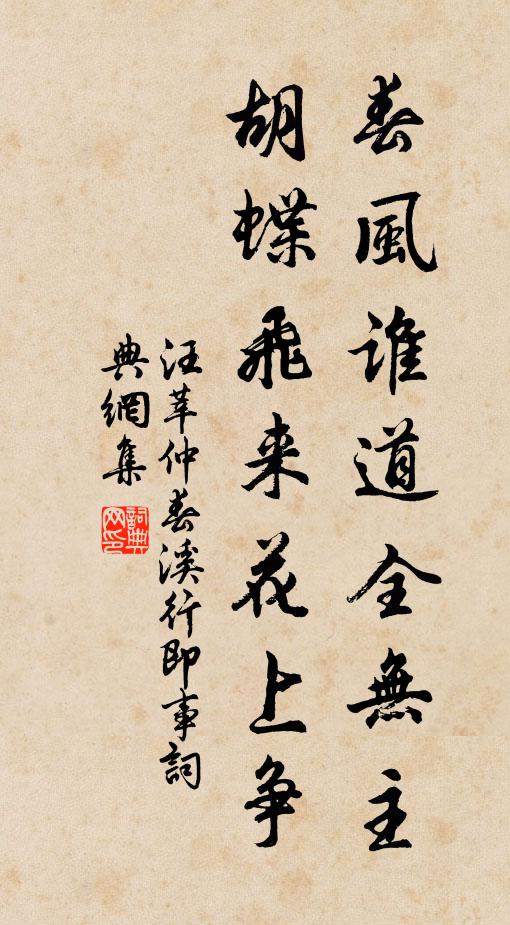 春風誰道全無主
胡蝶飛来花上争
汪莘仲春溪行即事詞
典網集
詞典網印